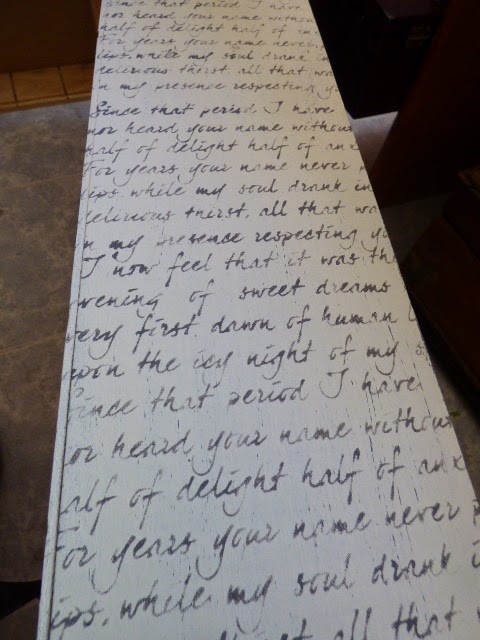 Since that period I have
nor heard your name withou
half of delight half of an
For years your name never
lips, while my soul drank in
delirious thirst, all that wa
n my presence respecting y
Since that period I have
nor heard your name without
half of delight half of anx
For years your name never p
lips, while my soul drank in
delirious thirst, all that wa
n my presence respecting yo
I now feel that it was the
vening of sweet dreams
very first dawn of human l
upon the icy night of my s
Since that period I have
or heard your name without
alf of delight half of anx
For years your name never p
ips, while my soul drank i
st all that